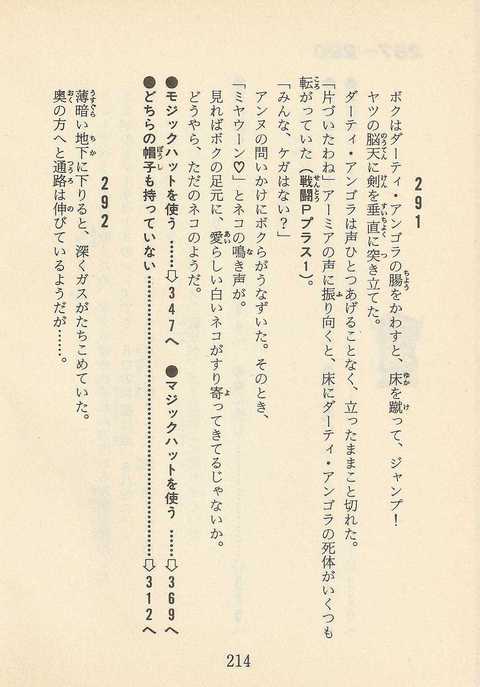 291
ボクはダーティ・アンゴラの腸をかわすと、床を蹴って、ジャンプ！
ヤツの脳天に剣を垂直に突き立てた。
ダーティ・アンゴラは声ひとつあげることなく、立ったままこと切れた。
「片づいたわね」アーミアの声に振り向くと、床にダーティ・アンゴラの死体がいくつも
転がっていた（戦闘Ｐプラス１）。
「みんな、ケガはない？」
アンヌの問いかけにボクらがうなずいた。そのとき、
「ミヤウーン♡」とネコの鳴き声が。
見ればボクの足元に、愛らしい白いネコがすり寄ってきてるじゃないか。
どうやら、ただのネコのようだ。
●モジックハットを使う ……⇨347へ　●マジックハットを使う ……⇨369へ
●どちらの帽子も持っていない……………………………………⇨312へ
292
薄暗い地下に下りると、深くガスがたちこめていた。
奥の方へと通路は伸びているようだが……。
214